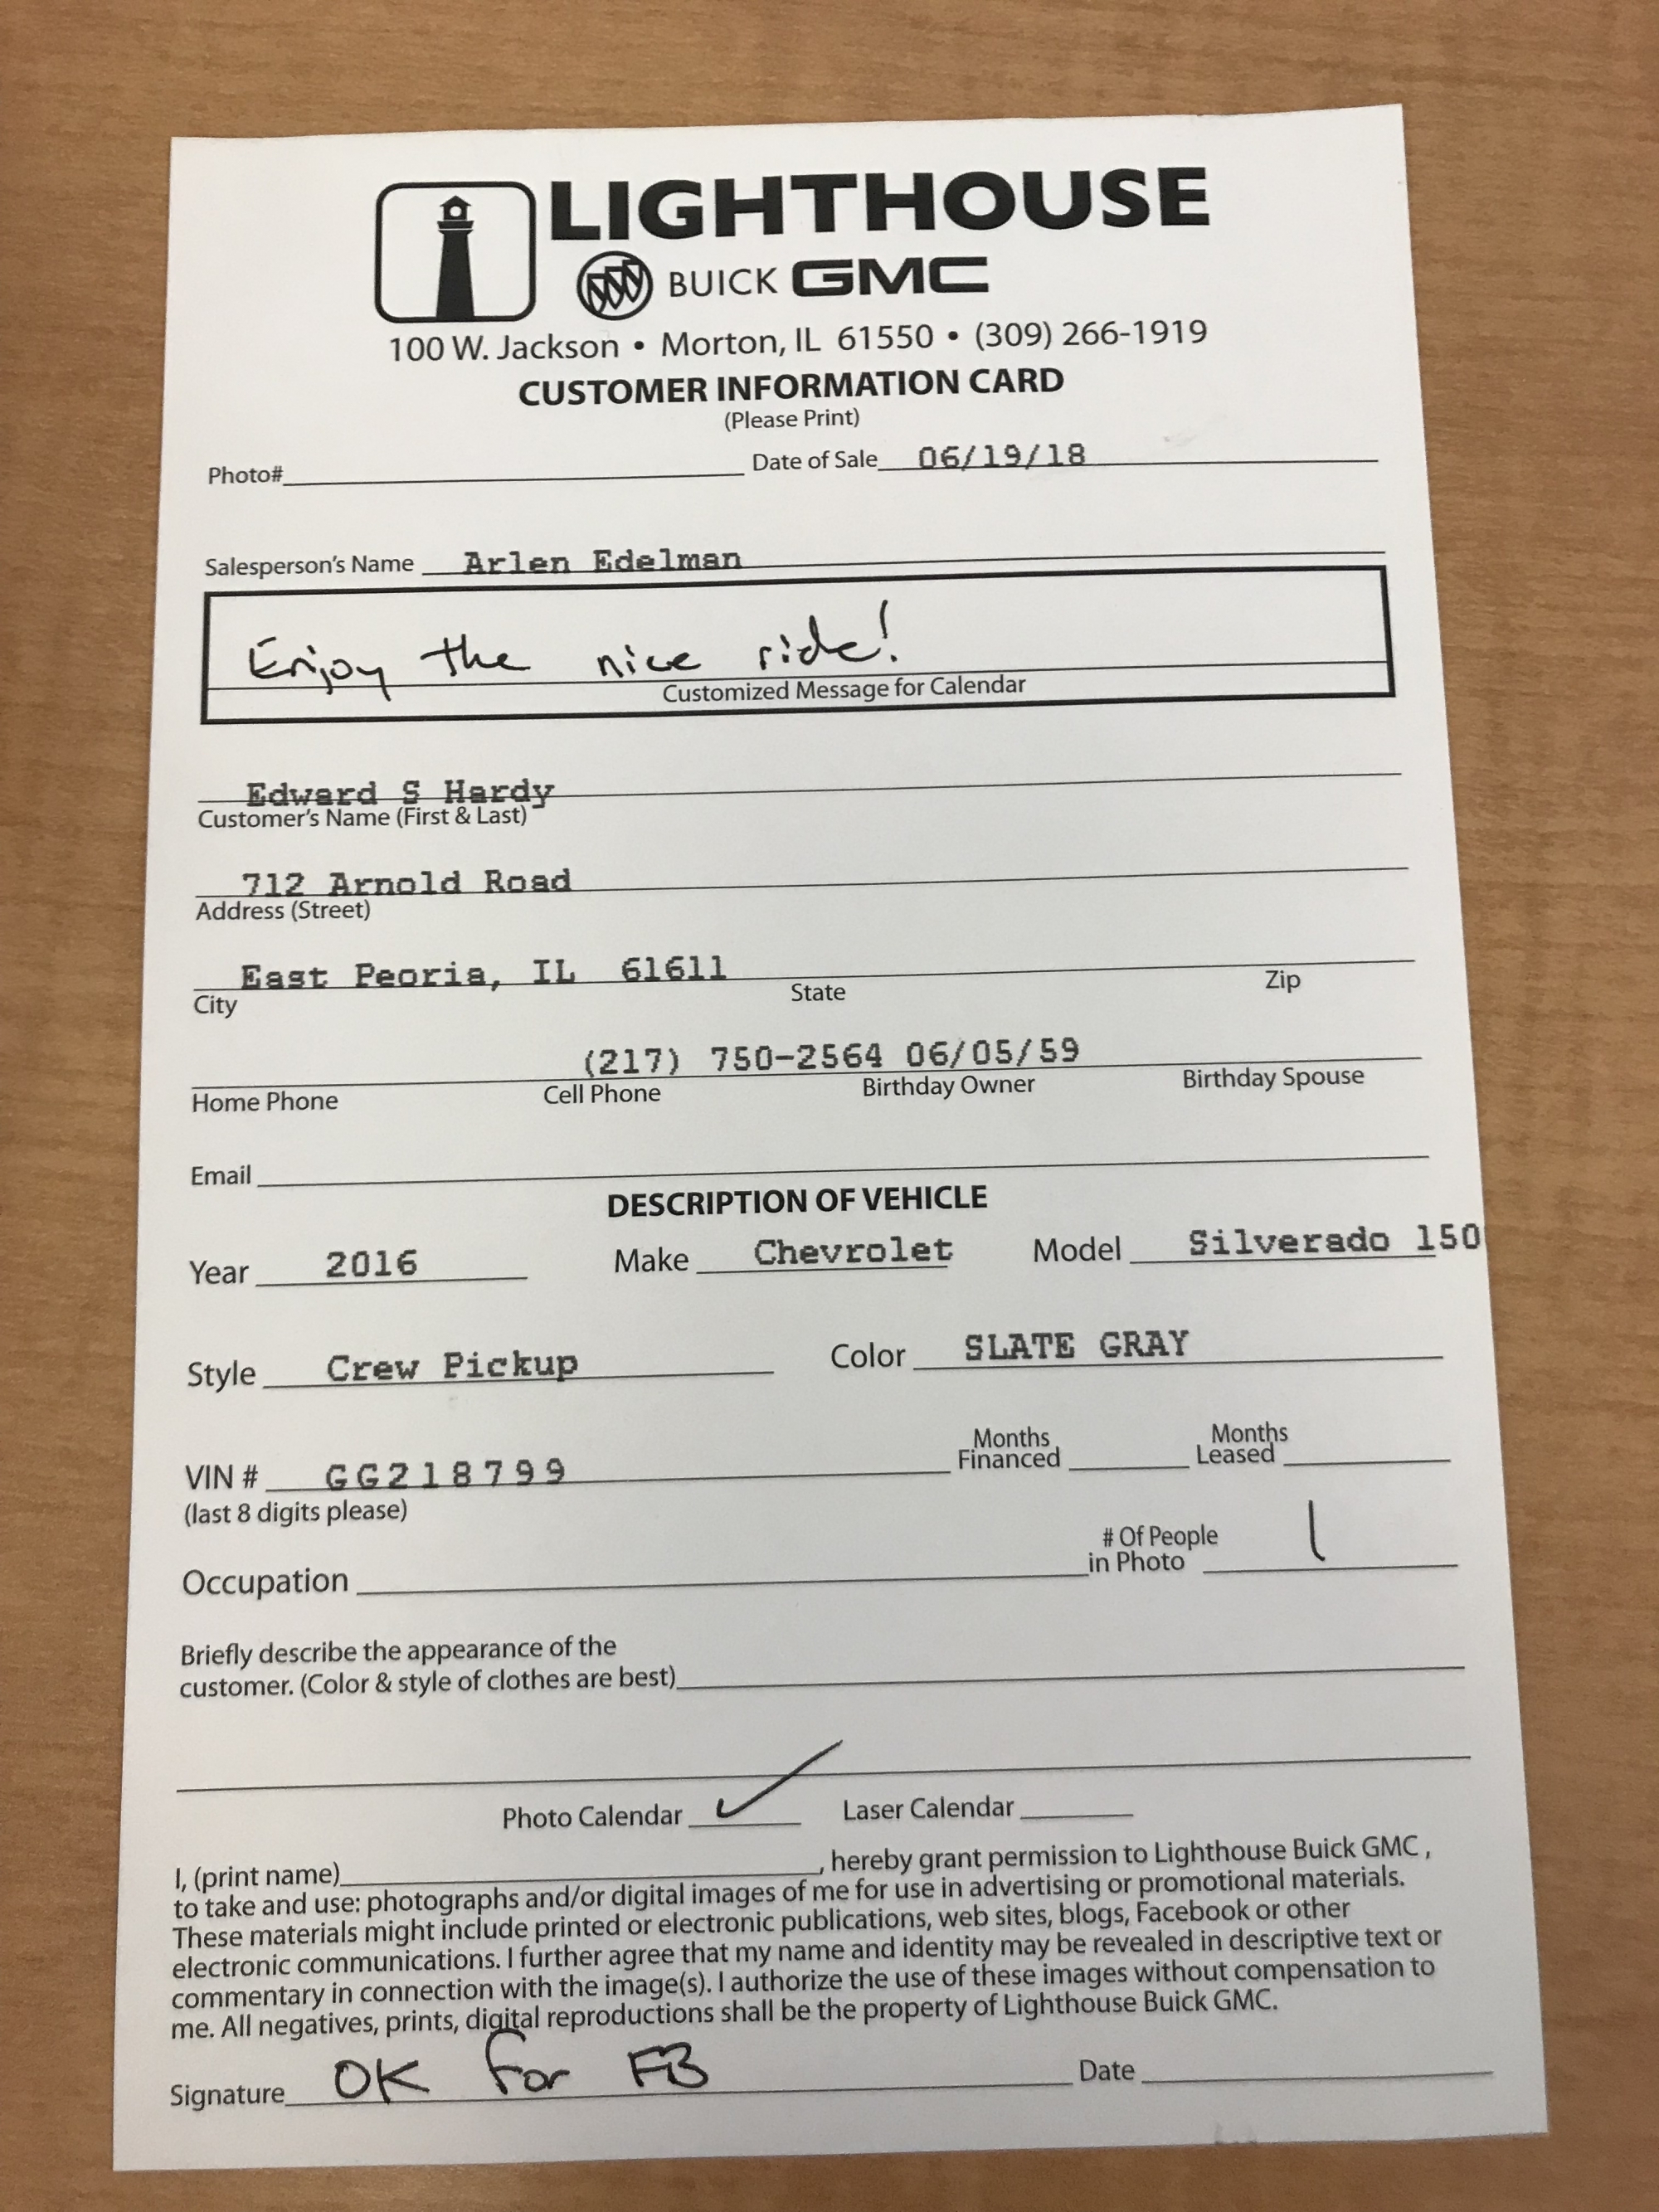 LIGHTHOUSE
BUICK GMC
100 W. Jackson • Morton, IL 61550 • (309) 266-1919
CUSTOMER INFORMATION CARD
(Please Print)
Photo# Date of Sale 06/19/18
Salesperson's Name Arlen Edelman
Enjoy the nice ride!
Customized Message for Calendar
Edward S Hardy
Customer's Name (First & Last)
712 Arnold Road
Address (Street)
East Peoria, IL 61611
City State Zip
(217) 750-2564 06/05/59
Home Phone Cell Phone Birthday Owner Birthday Spouse
Email
DESCRIPTION OF VEHICLE
Year 2016 Make Chevrolet Model Silverado 150
Style Crew Pickup Color SLATE GRAY
VIN # GG218799 Months Financed Months Leased
(last 8 digits please)
Occupation # Of People in Photo 1
Briefly describe the appearance of the
customer. (Color & style of clothes are best)
Photo Calendar ✓ Laser Calendar
I, (print name) , hereby grant permission to Lighthouse Buick GMC ,
to take and use: photographs and/or digital images of me for use in advertising or promotional materials.
These materials might include printed or electronic publications, web sites, blogs, Facebook or other
electronic communications. I further agree that my name and identity may be revealed in descriptive text or
commentary in connection with the image(s). I authorize the use of these images without compensation to
me. All negatives, prints, digital reproductions shall be the property of Lighthouse Buick GMC.
Signature OK for FB Date